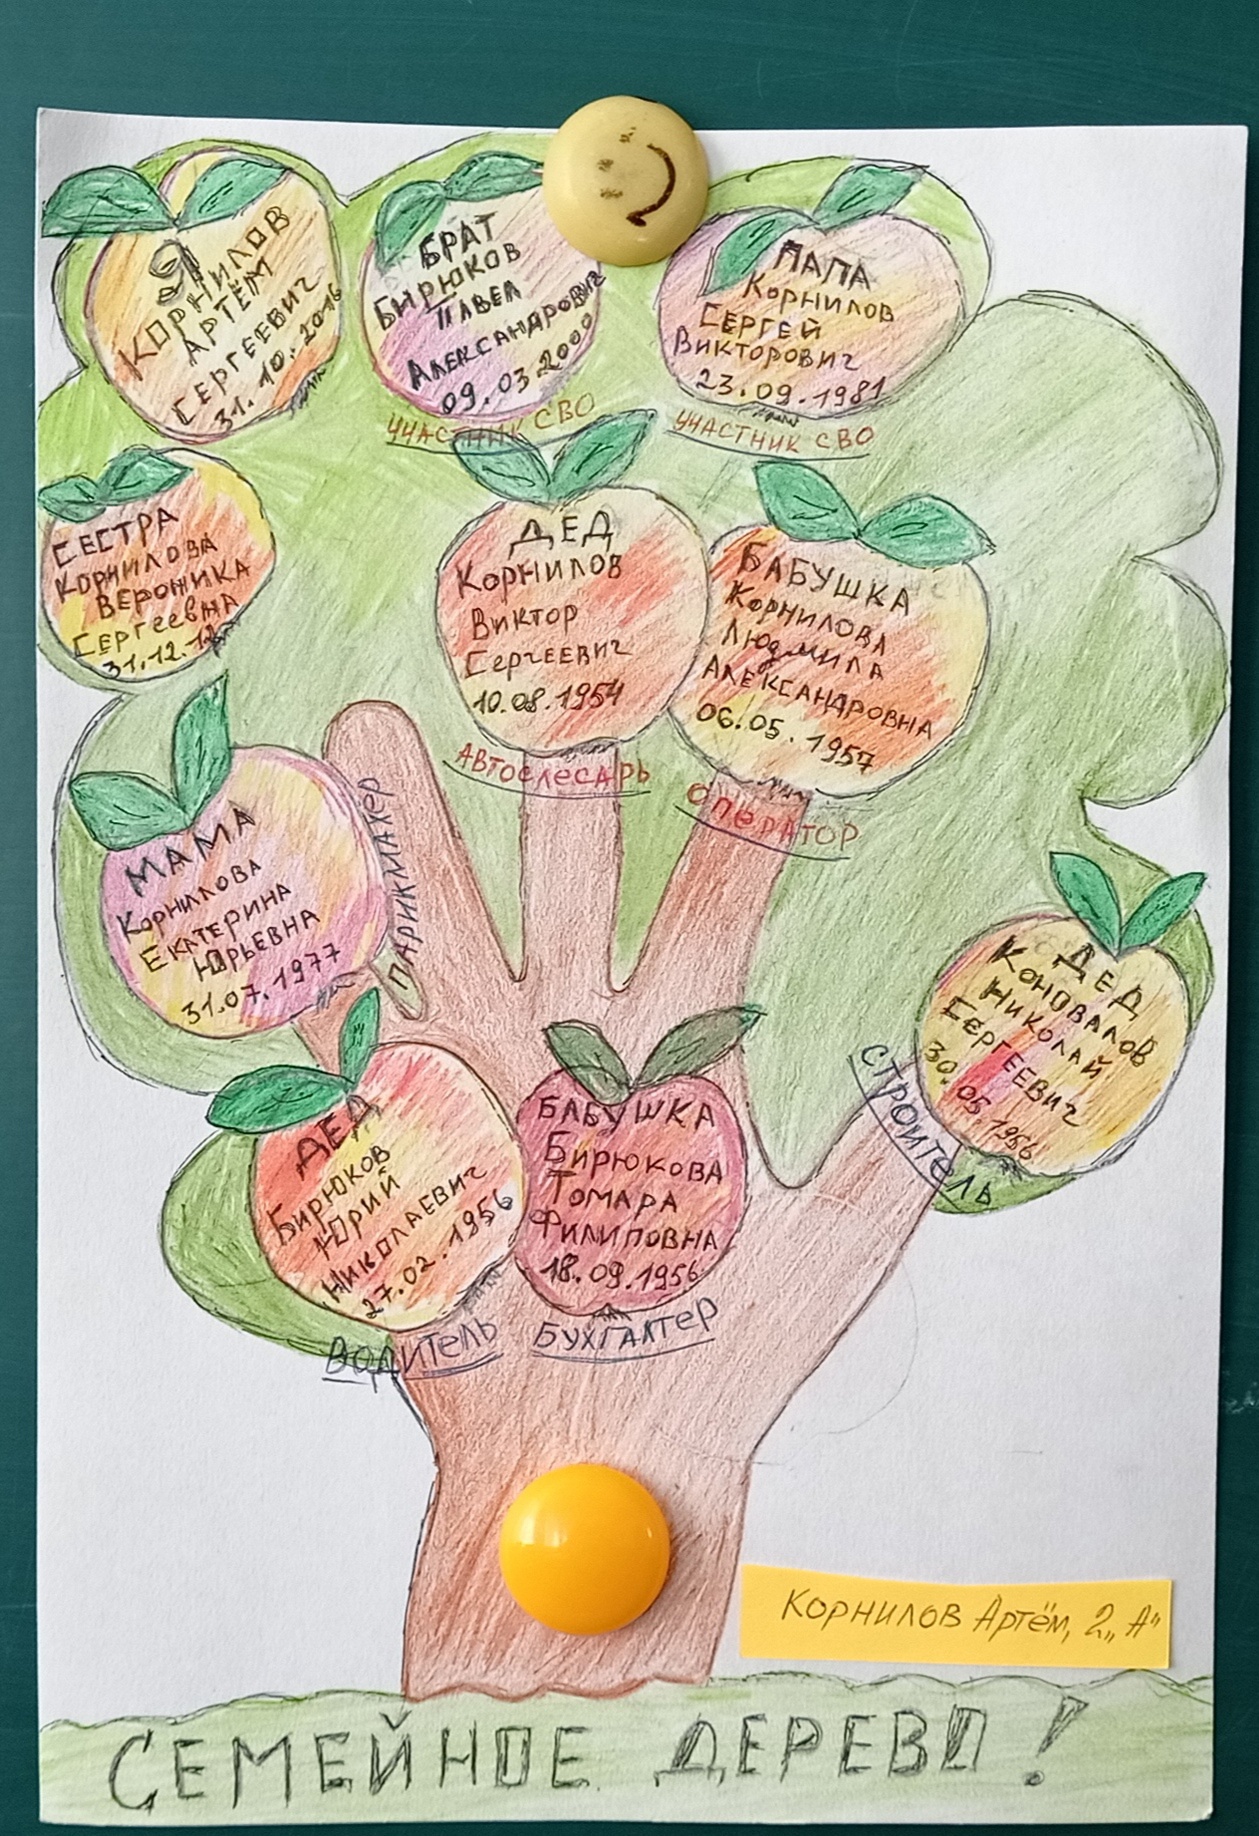 Я
КОРНИЛОВ
АРТЁМ
СЕРГЕЕВИЧ
31.10.2016
БРАТ
БИРЮКОВ
ПАВЕЛ
АЛЕКСАНДРОВИЧ
09.03.2000
УЧАСТНИК СВО
ПАПА
КОРНИЛОВ
СЕРГЕЙ
ВИКТОРОВИЧ
23.09.1981
УЧАСТНИК СВО
СЕСТРА
КОРНИЛОВА
ВЕРОНИКА
СЕРГЕЕВНА
31.12.12
ДЕД
КОРНИЛОВ
ВИКТОР
СЕРГЕЕВИЧ
10.08.1954
АВТОСЛЕСАРЬ
БАБУШКА
КОРНИЛОВА
ЛЮДМИЛА
АЛЕКСАНДРОВНА
06.05.1957
ОПЕРАТОР
МАМА
КОРНИЛОВА
ЕКАТЕРИНА
ЮРЬЕВНА
31.07.1977
ПАРИКМАХЕР
ДЕД
КОНОВАЛОВ
НИКОЛАЙ
СЕРГЕЕВИЧ
30.05.1956
СТРОИТЕЛЬ
ДЕД
БИРЮКОВ
ЮРИЙ
НИКОЛАЕВИЧ
27.02.1956
ВОДИТЕЛЬ
БАБУШКА
БИРЮКОВА
ТОМАРА
ФИЛИПОВНА
18.09.1956
БУХГАЛТЕР
КОРНИЛОВ АРТЁМ, 2 „А"
СЕМЕЙНОЕ ДЕРЕВО!